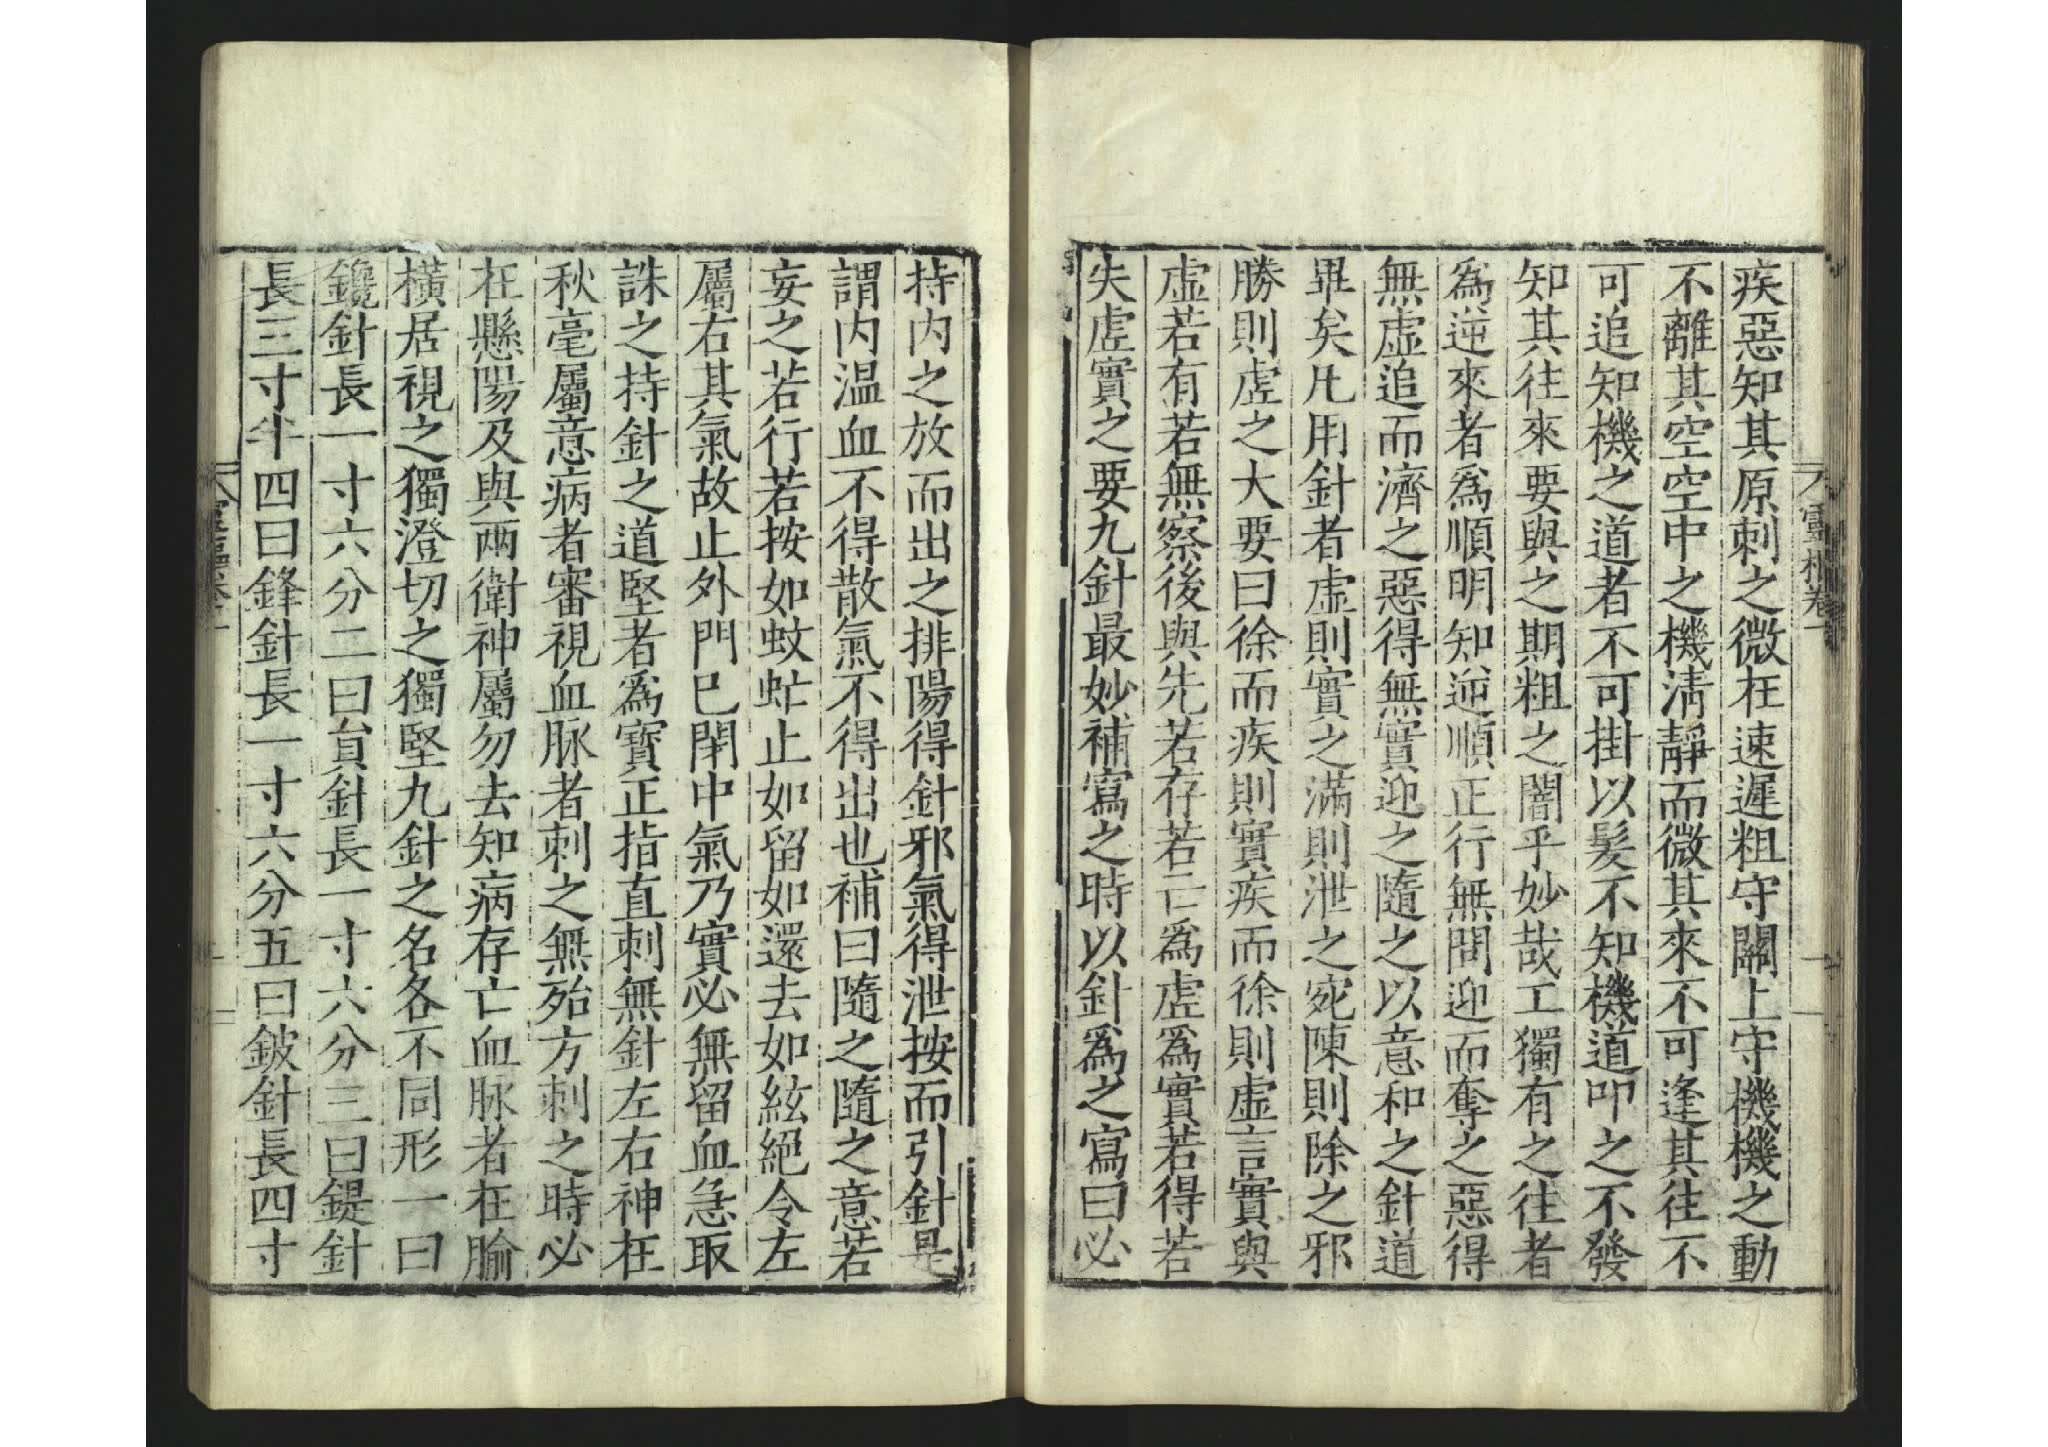 靈樞卷一
疾惡知其原刺之微在速遲粗守關上守機機之動
不離其空空中之機清靜而微其來不可逢其往不
可追知機之道者不可掛以髮不知機道叩之不發
知其往來要與之期粗之闇乎妙哉工獨有之往者
爲逆來者爲順明知逆順正行無問迎而奪之惡得
無虛追而濟之惡得無實迎之隨之以意和之針道
畢矣凡用針者虛則實之滿則泄之宛陳則除之邪
勝則虛之大要曰徐而疾則實疾而徐則虛言實與
虛若有若無察後與先若存若亡爲虛爲實若得若
失虛實之要九針最妙補寫之時以針爲之寫曰必
持内之放而出之排陽得針邪氣得泄按而引針是
謂内温血不得散氣不得出也補曰隨之隨之意若
妄之若行若按如蚊虻止如留如還去如絃絕令左
屬右其氣故止外門已閉中氣乃實必無留血急取
誅之持針之道堅者爲寶正指直刺無針左右神在
秋毫屬意病者審視血脉者刺之無殆方刺之時必
在懸陽及與兩衛神屬勿去知病存亡血脉者在腧
橫居視之獨澄切之獨堅九針之名各不同形一曰
鑱針長一寸六分二曰員針長一寸六分三曰鍉針
長三寸半四曰鋒針長一寸六分五曰鈹針長四寸
靈樞卷一